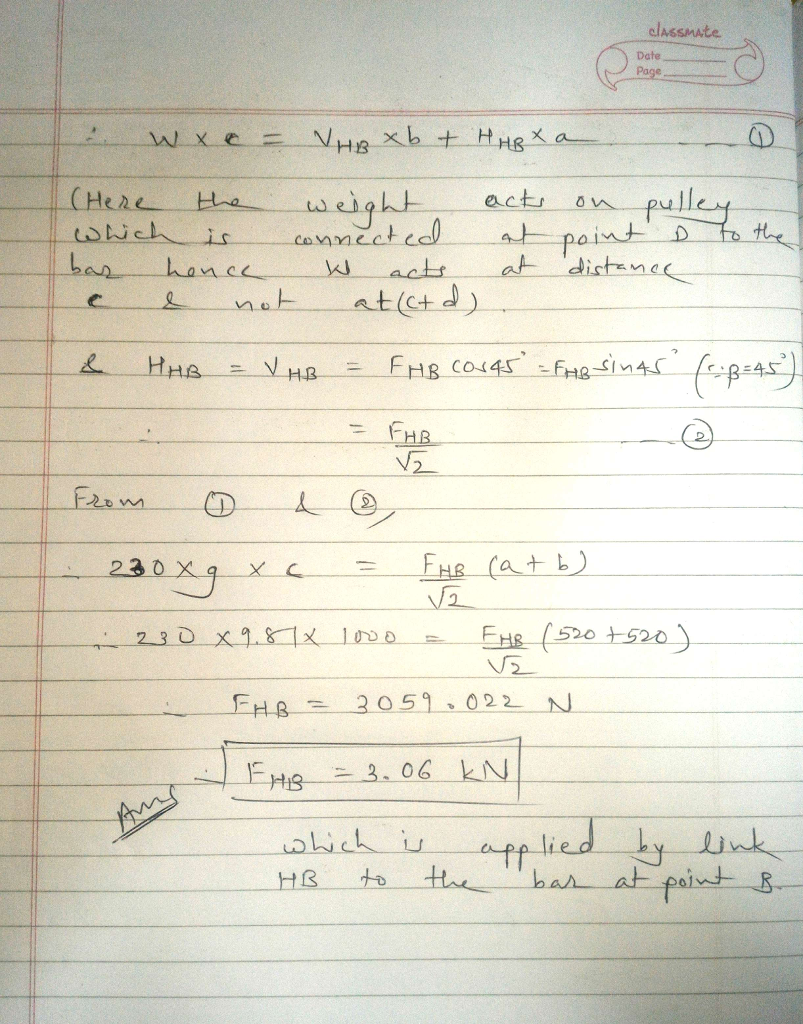 classmate
Date
Page
∴ W × c = V_HB × b + H_HB × a —— ①
(Here the weight acts on pulley
which is connected at point D to the
bar hence W acts at distance
c & not at (c+d)
& H_HB = V_HB = F_HB cos45° = F_HB sin45° (∵ β=45°)
∴ = F_HB/√2 —— ②
From ① & ②,
∴ 230 × g × c = F_HB/√2 (a+b)
∴ 230 × 9.81 × 1000 = F_HB/√2 (520+520)
∴ F_HB = 3059.022 N
∴ F_HB = 3.06 kN
Ans
which is applied by link
HB to the bar at point B.